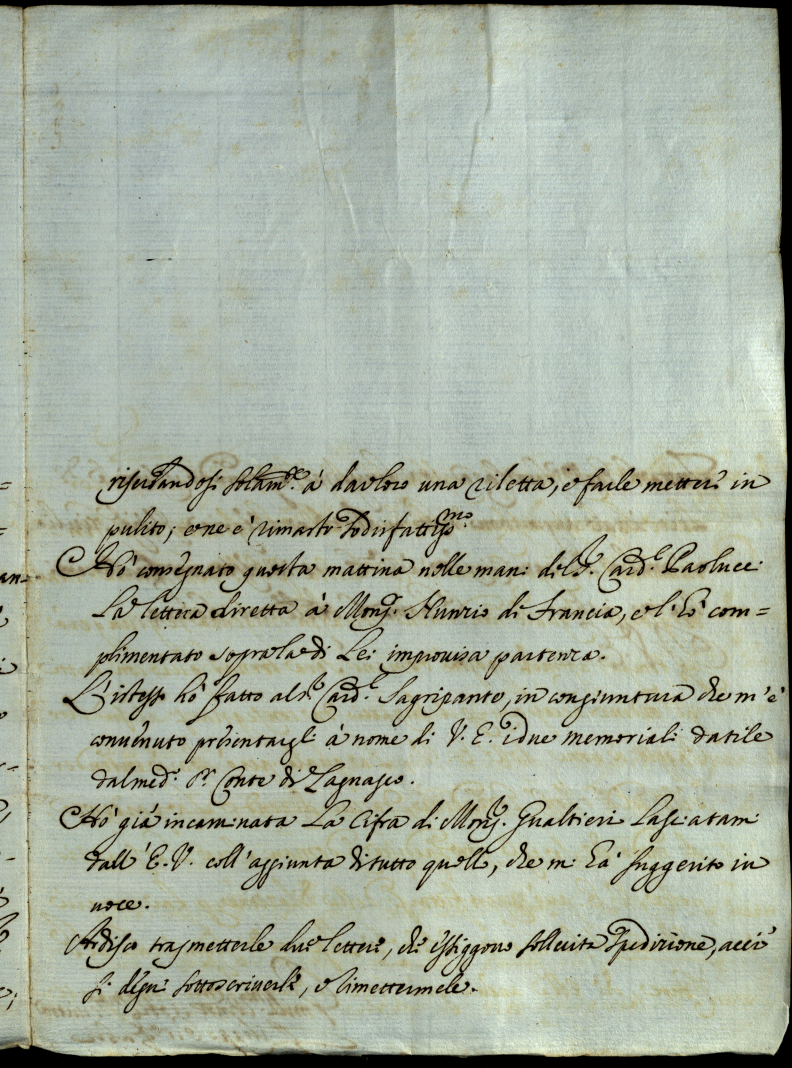 riserbandosi solam.te à dar loro una riletta, e farle mettere in
pulito; e ne è rimasto sodisfattiss.mo
Hò consegnato questa mattina nelle mani del S.r Card.l Paolucci
la lettera diretta à Mons.r Nunzio di Francia, e l'hò com=
plimentato sopra la di Lei improvisa partenza.
L'istesso hò fatto al S.r Card.l Sagripante, in congiuntura che m'è
convenuto presentargli à nome di V. E. i due memoriali datile
dal med.o S.r Conte di Lagnasco.
Hò già incaminata la Cifra di Mons.r Gualtieri lasciatami
dall' E. V. coll' aggiunta di tutto quello, che mi hà suggerito in
voce.
Ardisco trasmetterle due lettere, che esiggono sollecita spedizione, acciò
si degni sottoscriverle, e rimettermele.
an=